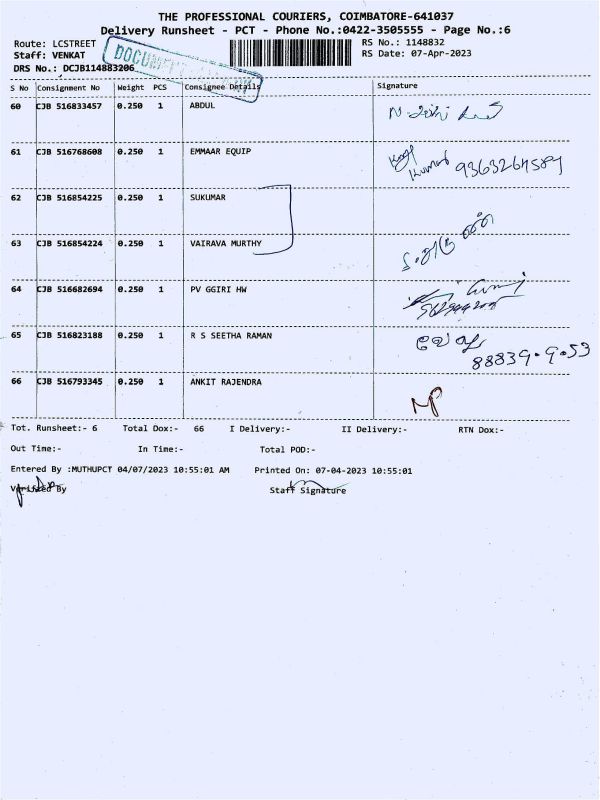 THE PROFESSIONAL COURIERS, COIMBATORE-641037
Delivery Runsheet - PCT - Phone No.:0422-3505555 - Page No.:6
Route: LCSTREET RS No.: 1148832
Staff: VENKAT RS Date: 07-Apr-2023
DRS No.: DCJB114883206
DOCUMENT
S No Consignment No Weight PCS Consignee Details Signature
60 CJB 516833457 0.250 1 ABDUL
61 CJB 516768608 0.250 1 EMMAAR EQUIP Kumar 9363264589
62 CJB 516854225 0.250 1 SUKUMAR
63 CJB 516854224 0.250 1 VAIRAVA MURTHY
64 CJB 516682694 0.250 1 PV GGIRI HW
65 CJB 516823188 0.250 1 R S SEETHA RAMAN 88839.9.53
66 CJB 516793345 0.250 1 ANKIT RAJENDRA
Tot. Runsheet:- 6 Total Dox:- 66 I Delivery:- II Delivery:- RTN Dox:-
Out Time:- In Time:- Total POD:-
Entered By :MUTHUPCT 04/07/2023 10:55:01 AM Printed On: 07-04-2023 10:55:01
Verified By Staff Signature